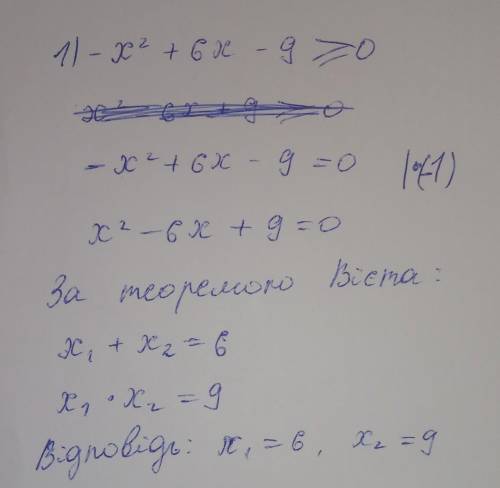 1) - x² + 6x - 9 ⩾ 0
x² - 6x + 9 ⩾ 0
- x² + 6x - 9 = 0 |·(-1)
x² - 6x + 9 = 0
За теоремою Вієта:
x₁ + x₂ = 6
x₁ · x₂ = 9
Відповідь: x₁ = 6, x₂ = 9